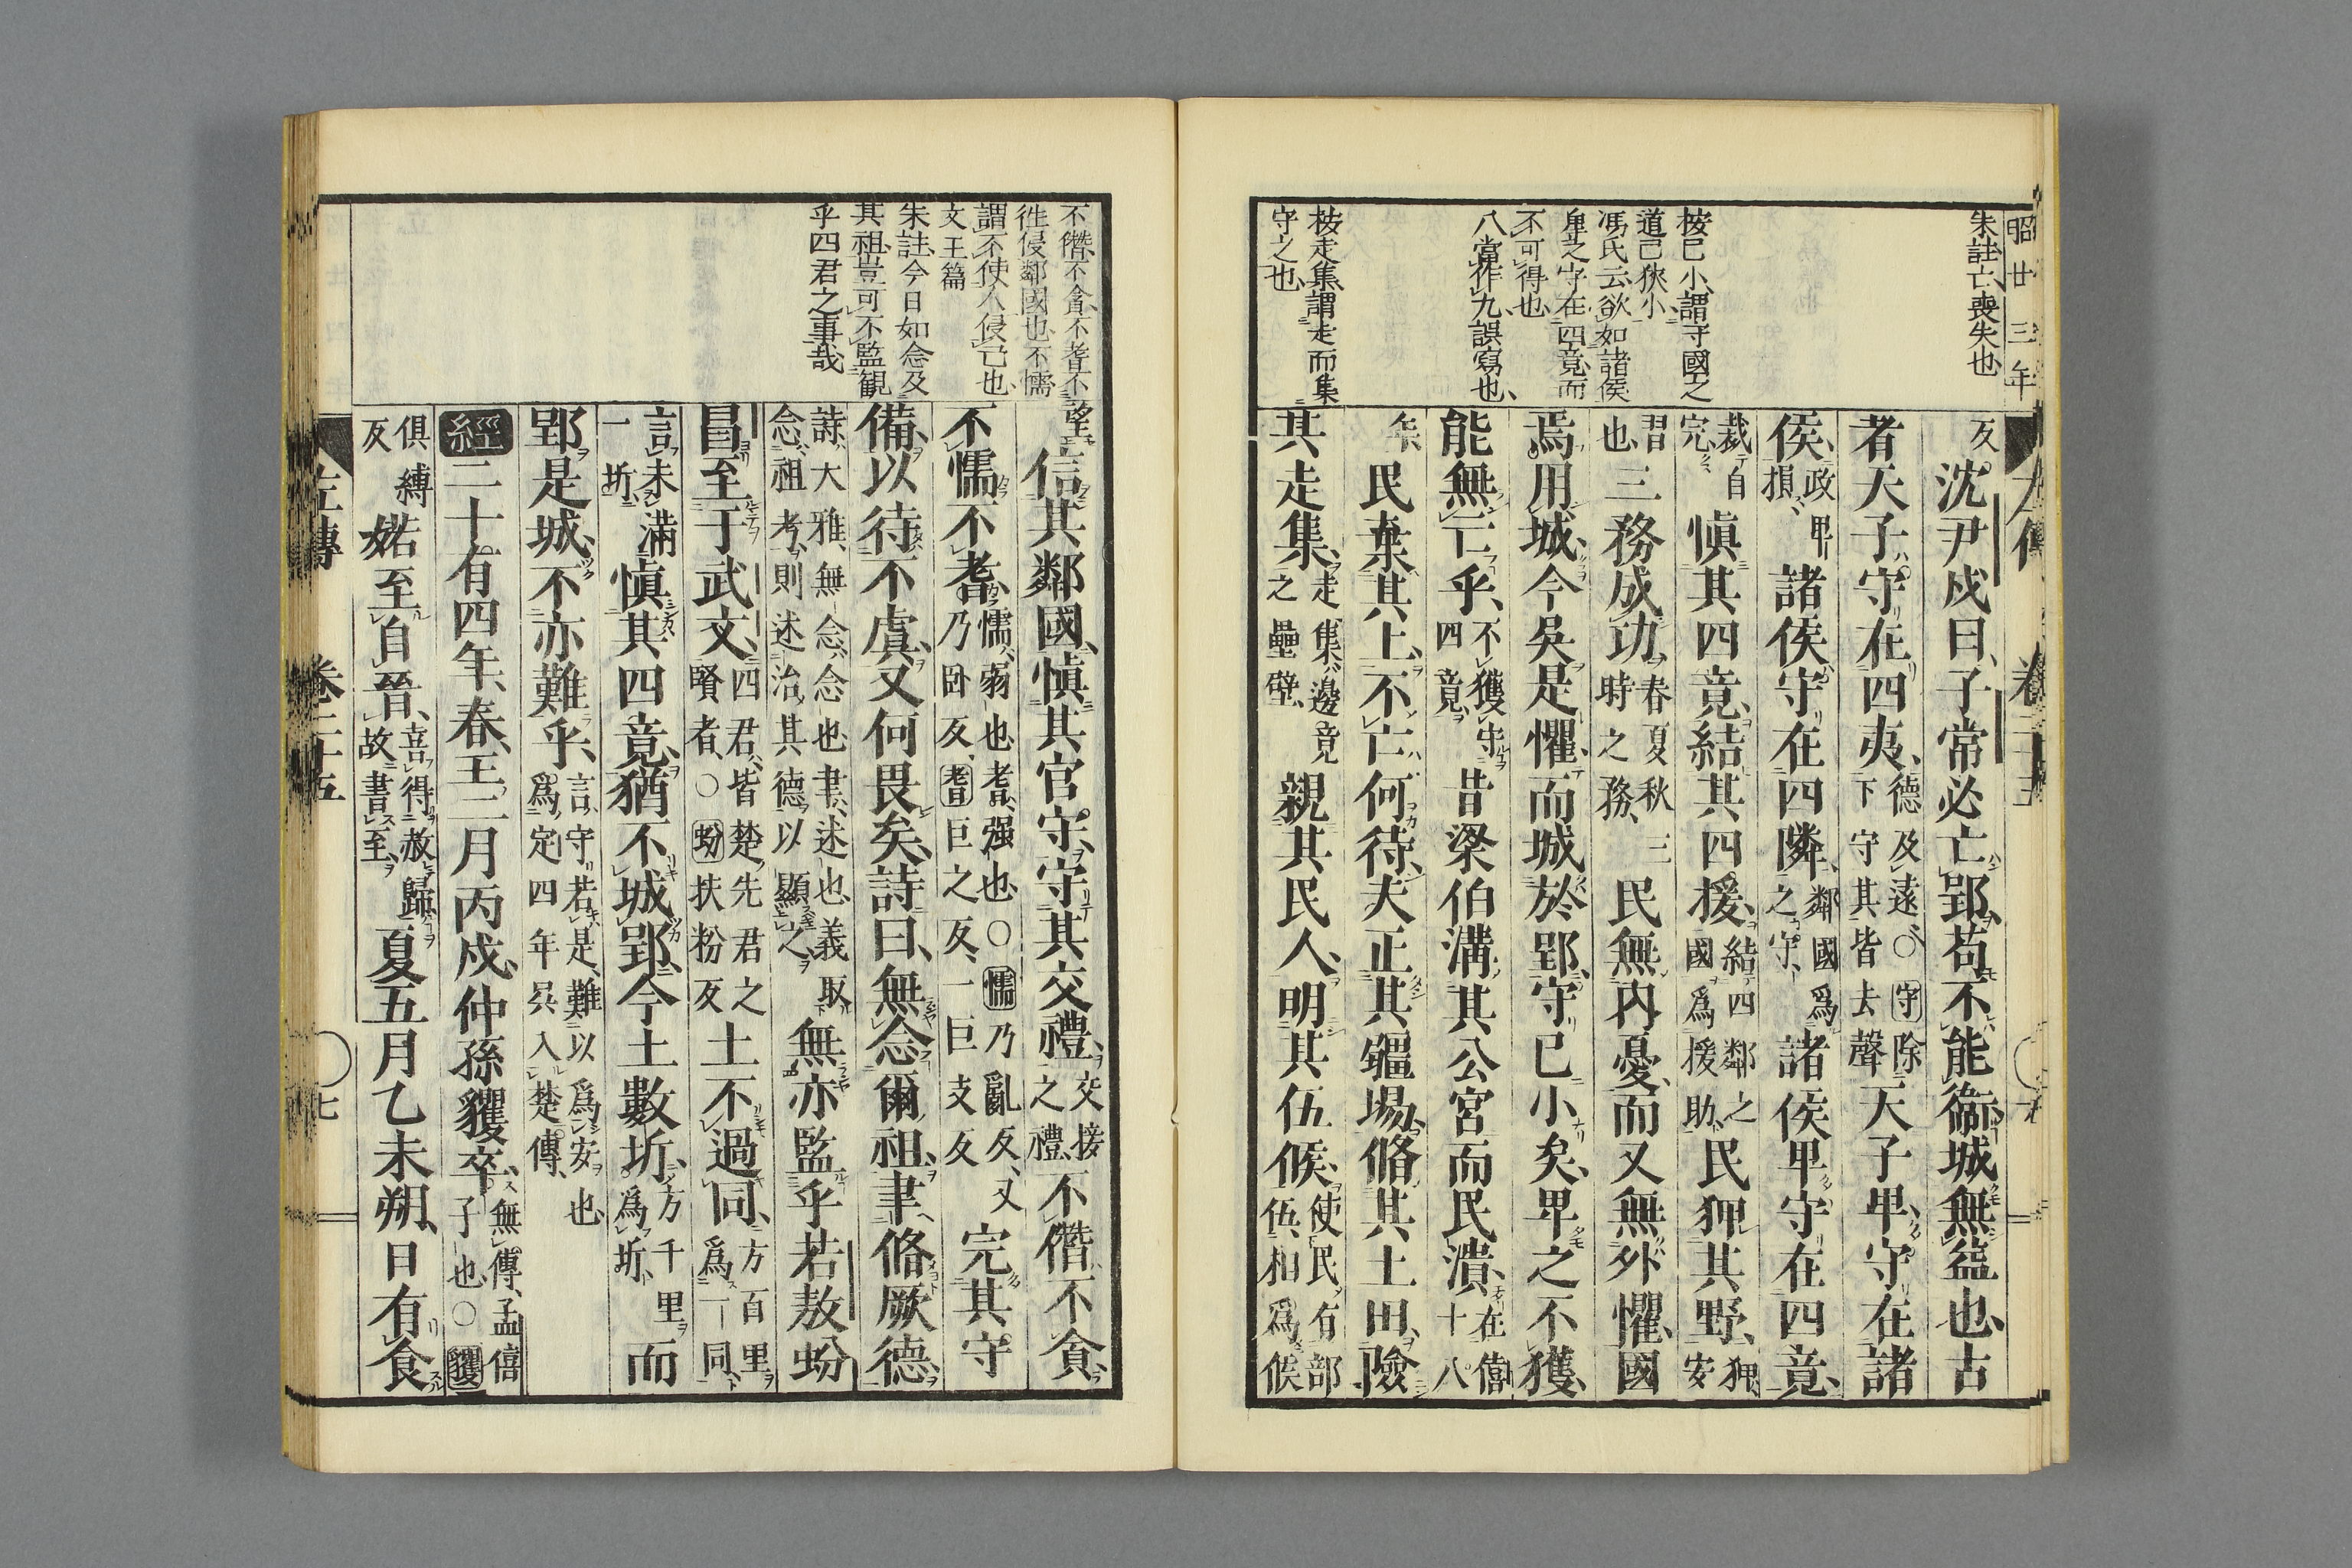 昭廿三年
朱註亡喪失也
按已小謂守國之
道已狹小
馮氏云欲如諸侯
卑之守在四竟而
不可得也
八當作九誤寫也
按走集謂走而集
守之也
反沈尹戌曰子常必亡郢苟不能衞城無益也古
者天子守在四夷德及遠○守除
下守其皆去聲天子卑守在諸
侯政卑
損諸侯守在四隣鄰國爲
之守諸侯卑守在四竟
裁自
完愼其四竟結其四援結四鄰之
國爲援助民狎其野狎
安
習
也三務成功春夏秋三
時之務民無内憂而又無外懼國
焉用城今吳是懼而城於郢守已小矣卑之不獲
能無亡乎不獲守
四竟昔梁伯溝其公宮而民潰在僖
十八
年民棄其上不亡何待夫正其疆場脩其土田險
其走集走集邊竟
之壘壁親其民人明其伍候使民有部
伍相爲候
不僭不貪不耆不
徃侵鄰國也不懦
謂不使人侵己也
文王篇
朱註今日如念及
其祖豈可不監觀
乎四君之事哉
望信其鄰國愼其官守守其交禮交接
之禮不僭不貪
不懦不耆懦弱也耆强也○懦乃亂反又
乃臥反耆巨之反一巨支反完其守
備以待不虞又何畏矣詩曰無念爾祖聿脩厥德
詩大雅無念念也聿述也義取
念祖考則述治其德以顯之無亦監乎若敖蚡
冒至于武文四君皆楚先君之
賢者○蚡扶粉反土不過同方百里
爲一同
言未滿
一圻愼其四竟猶不城郢今土數圻方千里
爲圻而
郢是城不亦難乎言守若是難以爲安也
爲定四年吳入楚傳
經二十有四年春王二月丙戌仲孫貜卒無傳孟僖
子也○貜
俱縛
反婼至自晉喜得赦歸
故書至夏五月乙未朔日有食
左傳 卷二十五 七